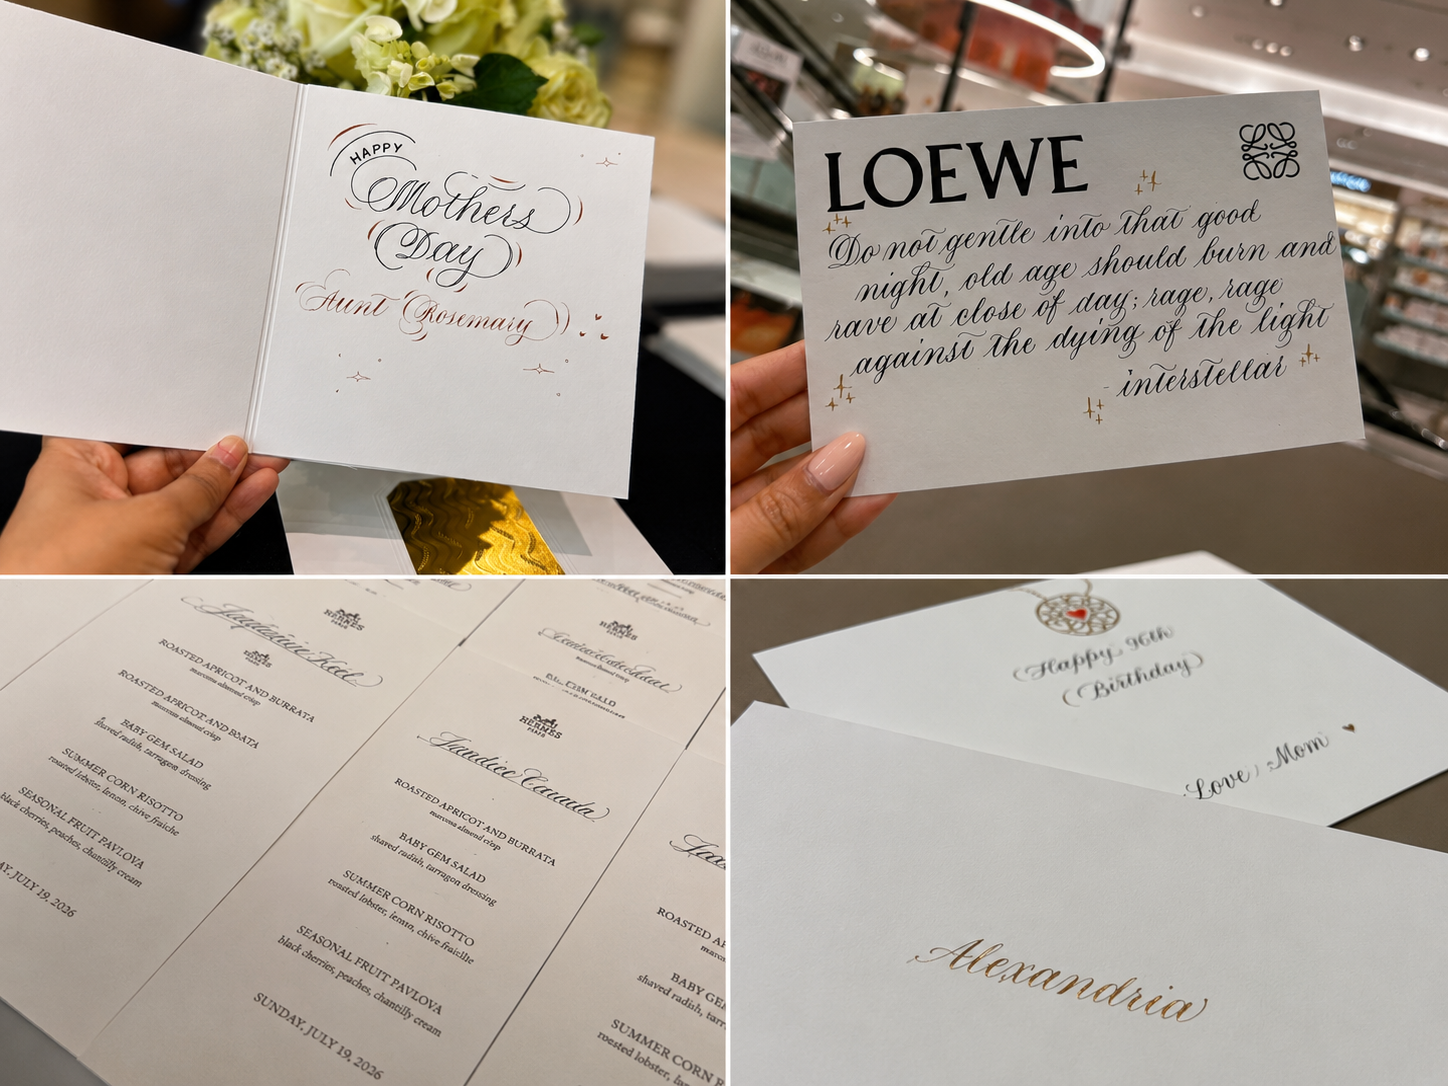 HAPPY
Mothers
Day
Aunt Rosemary
LOEWE
Do not gentle into that good
night, old age should burn and
rave at close of day; rage, rage
against the dying of the light
- interstellar
HERMÈS
PARIS
HERMÈS
ROASTED APRICOT AND BURRATA
marcona almond crisp
ROASTED APRICOT AND
BABY GEM SALAD
shaved radish, tarragon dressing
SUMMER CORN RISOTTO
roasted lobster, lemon, chive fraiche
SEASONAL FRUIT PAVLOVA
black cherries, peaches, chantilly cream
AY, JULY 19, 2026
HERMÈS
HERMÈS
PARIS
ROASTED APRICOT AND BURRATA
marcona almond crisp
BABY GEM SALAD
shaved radish, tarragon dressing
SUMMER CORN RISOTTO
roasted lobster, lemon, chive
SEASONAL FRUIT PAVLOVA
black cherries, peaches, chantilly cream
SUNDAY, JULY 19, 2026
ROASTED AP
marco
BABY GE
shaved radish, tarr
SUMMER CORN R
roested lobster, lem
Happy 96th
Birthday
Love, Mom
Alexandria